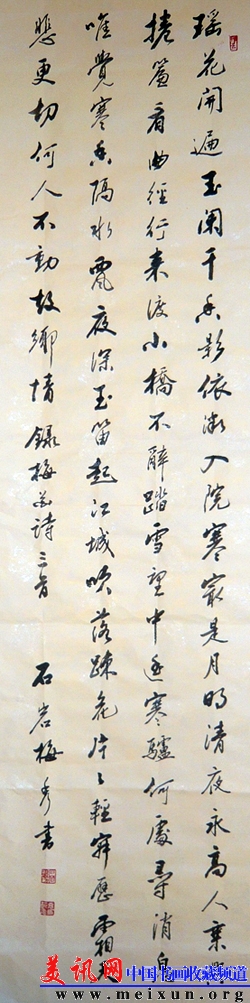 瑶花开遍玉阑干香影依微入院寒最是月明清夜永高人乘兴
捲簾看曲徑行来渡小橋不辭踏雪望中遥寒驢何處尋消息
唯覺寒香隔水飄夜深玉笛起江城吹落疎花片々輕寂歷霜天
悲更切何人不動故鄉情錄梅花詩三首
石岩梅秀書
美讯网 中国书画收藏频道
www.meixun.org